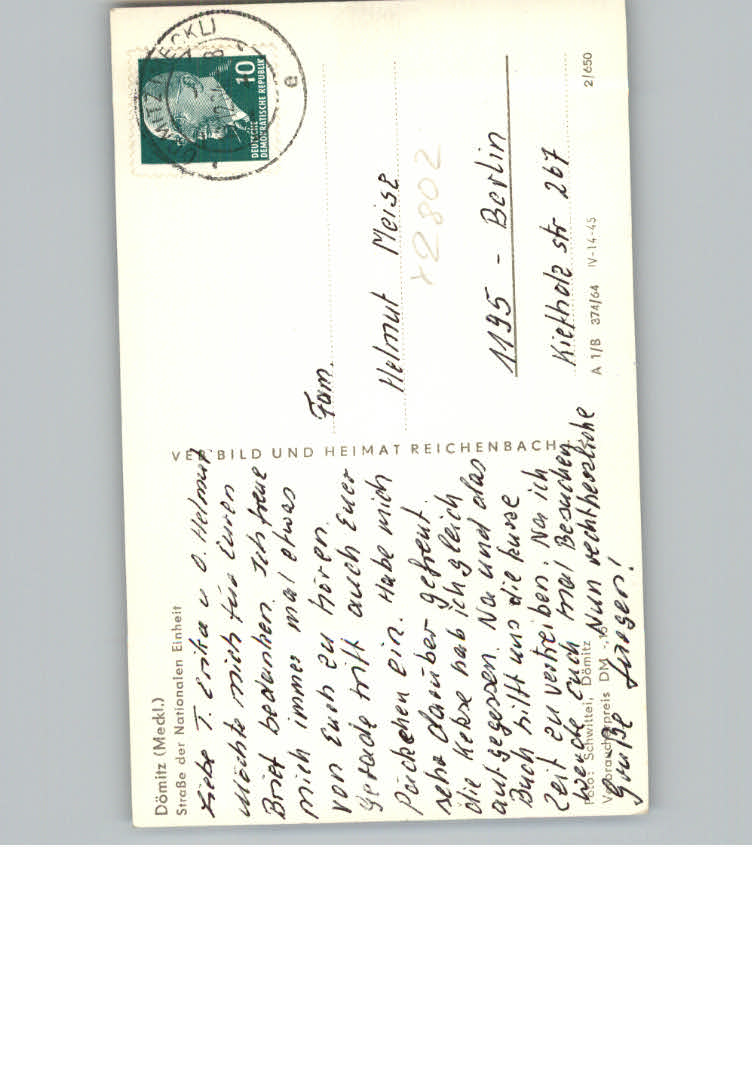 Dömitz (Meckl.)
Straße der Nationalen Einheit
Liebe T. Erika u. O. Helmut
Möchte mich für Euren
Brief bedanken. Ich freue
mich immer mal etwas
von Euch zu hören.
Gerade trifft auch Euer
Päckchen ein. Habe mich
sehr darüber gefreut.
die Kekse hab ich gleich
aufgegessen. Na und das
Buch hilft uns die kurze
Zeit zu vertreiben. Na ich
werde euch mal Besuchen
Nun recht herzliche
Grüße Jürgen!
Foto: Schwittei, Dömitz
Verbraucherpreis DM -,10
VEB BILD UND HEIMAT REICHENBACH
10
DEUTSCHE
DEMOKRATISCHE REPUBLIK
DÖMITZ (MECKL)
e
Fam.
Helmut Meise
x2802
1195 - Berlin
Kiefholz str 267
A 1/B 374/64 IV-14-45
2/650